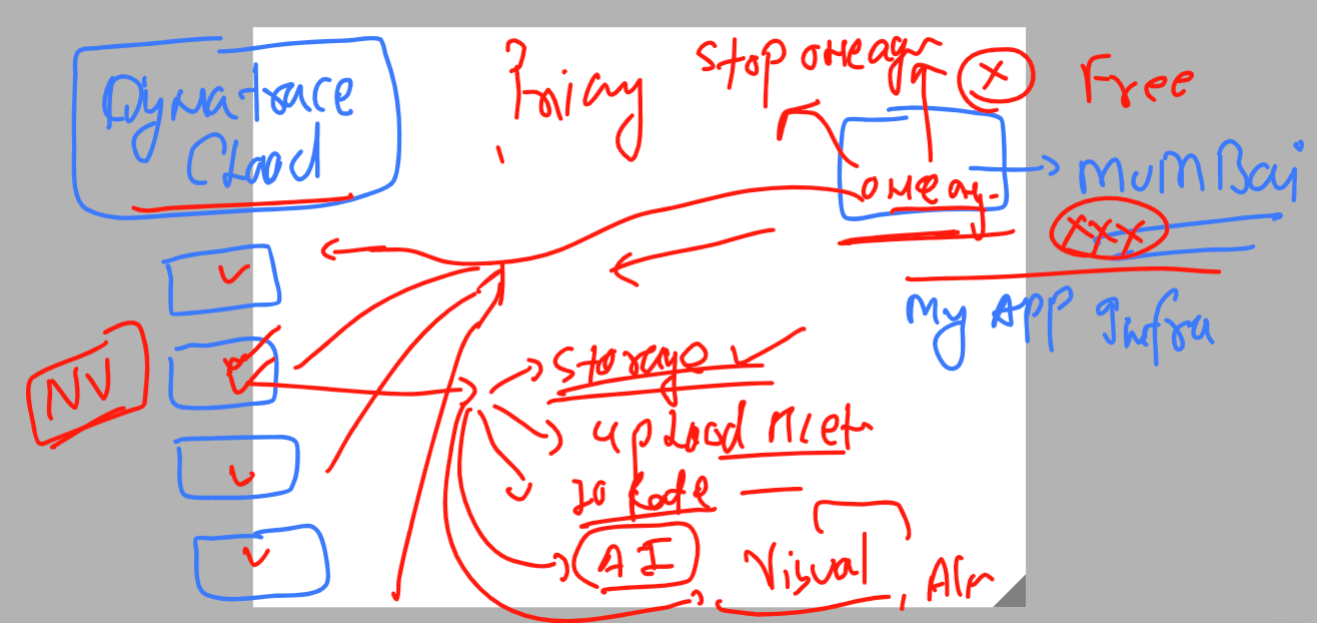 Dynatrace
CLood
Stop oneagn
X
Free
oneag
MUMBai
XXX
My APP Infra
NV
Storage
upLoad Metr
AI
Visual